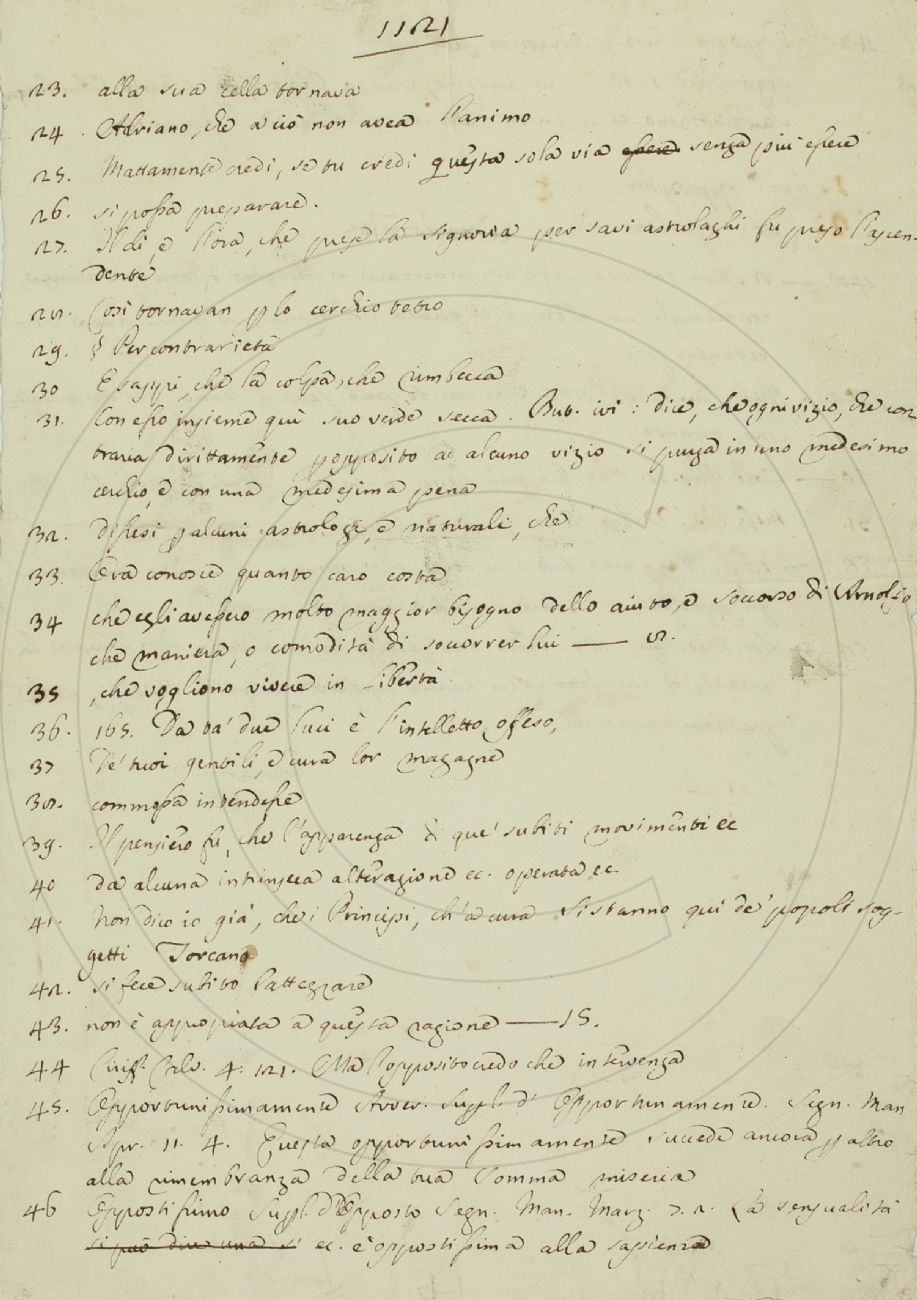 1121
23. alla sua cella tornava
24 Adriano, che a ciò non avea l'animo
25. Mattamente credi, se tu credi questa sola via essere senza più essere
26. si possa preparare.
27. Il dì, e l'ora, che prese la signoria per savi astrolaghi fu preso l'ascen-
dente
28. Così tornavan p lo cerchio tetro
29. Per contrarietà
30 E sappi, che la colpa, che rimbecca
31. Con esso insieme quì suo verde secca. But. ivi: dice, che ogni vizio, che con
traria dirittamente p opposito ad alcuno vizio si purga in uno medesimo
cerchio, e con una medesima pena
32. difesi p alcuni astrologi, e naturali, che
33. Ora conosce quanto caro costa
34 che egli avessero molto maggior bisogno dello aiuto, e soccorso di Arnolfo
che maniera, o comodità di soccorrer lui — 8.
35 , che vogliono vivere in libertà
36. 165. Da ta' due luci è l'intelletto offeso,
37 De' tuoi gentili, e cura lor magagne
38. commossa intendesse
39. Il pensiero fu, che l'apparenza di que' subiti movimenti ec
40 da alcuna intrinseca alterazione ec. operata ec
41. Non dico io già, che i Principi, ch' a cura si stanno quì de' popoli sog-
getti Toscano
42. si fece subito l'attegnare
43. non è appropriata a questa ragione — 15.
44 Criff. Calv. 4. 121. Ma l'opposito credo che intervenga
45. Opportunissimamente Avver. Suppl. d' Opportunamente. Segn. Man
Apr. 11. 4. Questa opportunissimamente succede ancora p altro
alla rimembranza della tua somma miseria
46 Oppostissimo Suppl. d'Opposto Segn. Man. Marz. 7. 2. La sensualità
si può dire una si ec. è oppostissima alla sapienza